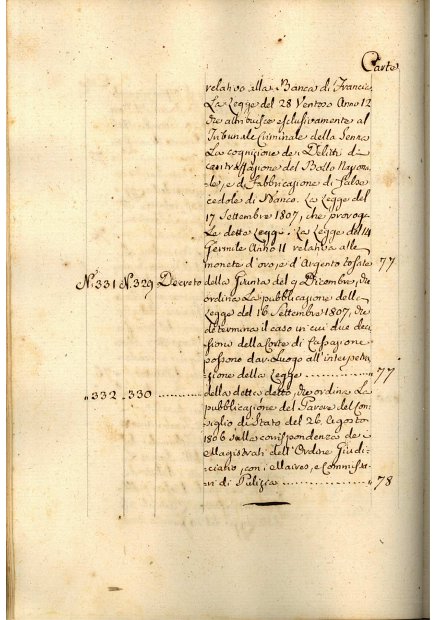 Carte
relativo alla Banca di Francia
La Legge del 28 Ventoso Anno 12
che attribuisce esclusivamente al
Tribunale Criminale della Senna
La cognizione de' Delitti di
contraffazione del Bollo Naziona-
le, e di Fabbricazione di false
cedole di Banco. La Legge del
17 Settembre 1807, che proroga
Le dette Leggi. La Legge del 14
Germile Anno 11 relativa alle
monete d'oro, e d'Argento tosate 77
N.331 N.329 Decreto della Giunta del 9 Dicembre, che
ordina La pubblicazione della
Legge del 16 Settembre 1807, che
determina il caso in cui due deci-
sioni della Corte di Cassazione
possono dar Luogo all'interpetra-
zione della Legge ............ " 77
" 332. 330 ............ della detta detto, che ordina La
pubblicazione del Parere del Con-
siglio di Stato del 26. Agosto
1806 sulla corrispondenza de'
Magistrati dell'Ordine Giudi-
ciario, con i Maires, e Commissa-
ri di Pulizia ............ " 78